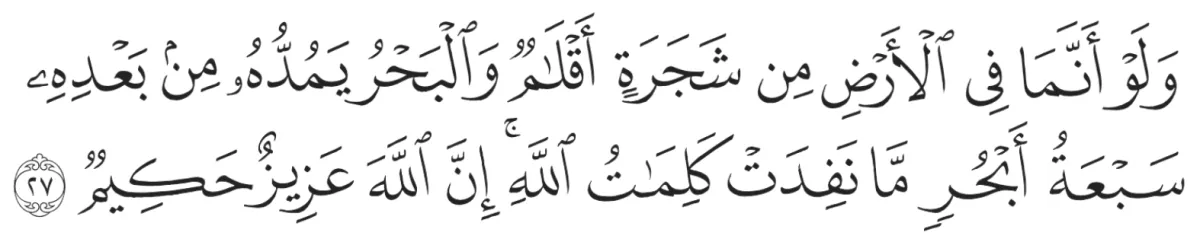 وَلَوْ أَنَّمَا فِي ٱلْأَرْضِ مِن شَجَرَةٍ أَقْلَـٰمٌ وَٱلْبَحْرُ يَمُدُّهُۥ مِنۢ بَعْدِهِۦ
سَبْعَةُ أَبْحُرٍ مَّا نَفِدَتْ كَلِمَـٰتُ ٱللَّهِ ۚ إِنَّ ٱللَّهَ عَزِيزٌ حَكِيمٌ ٢٧